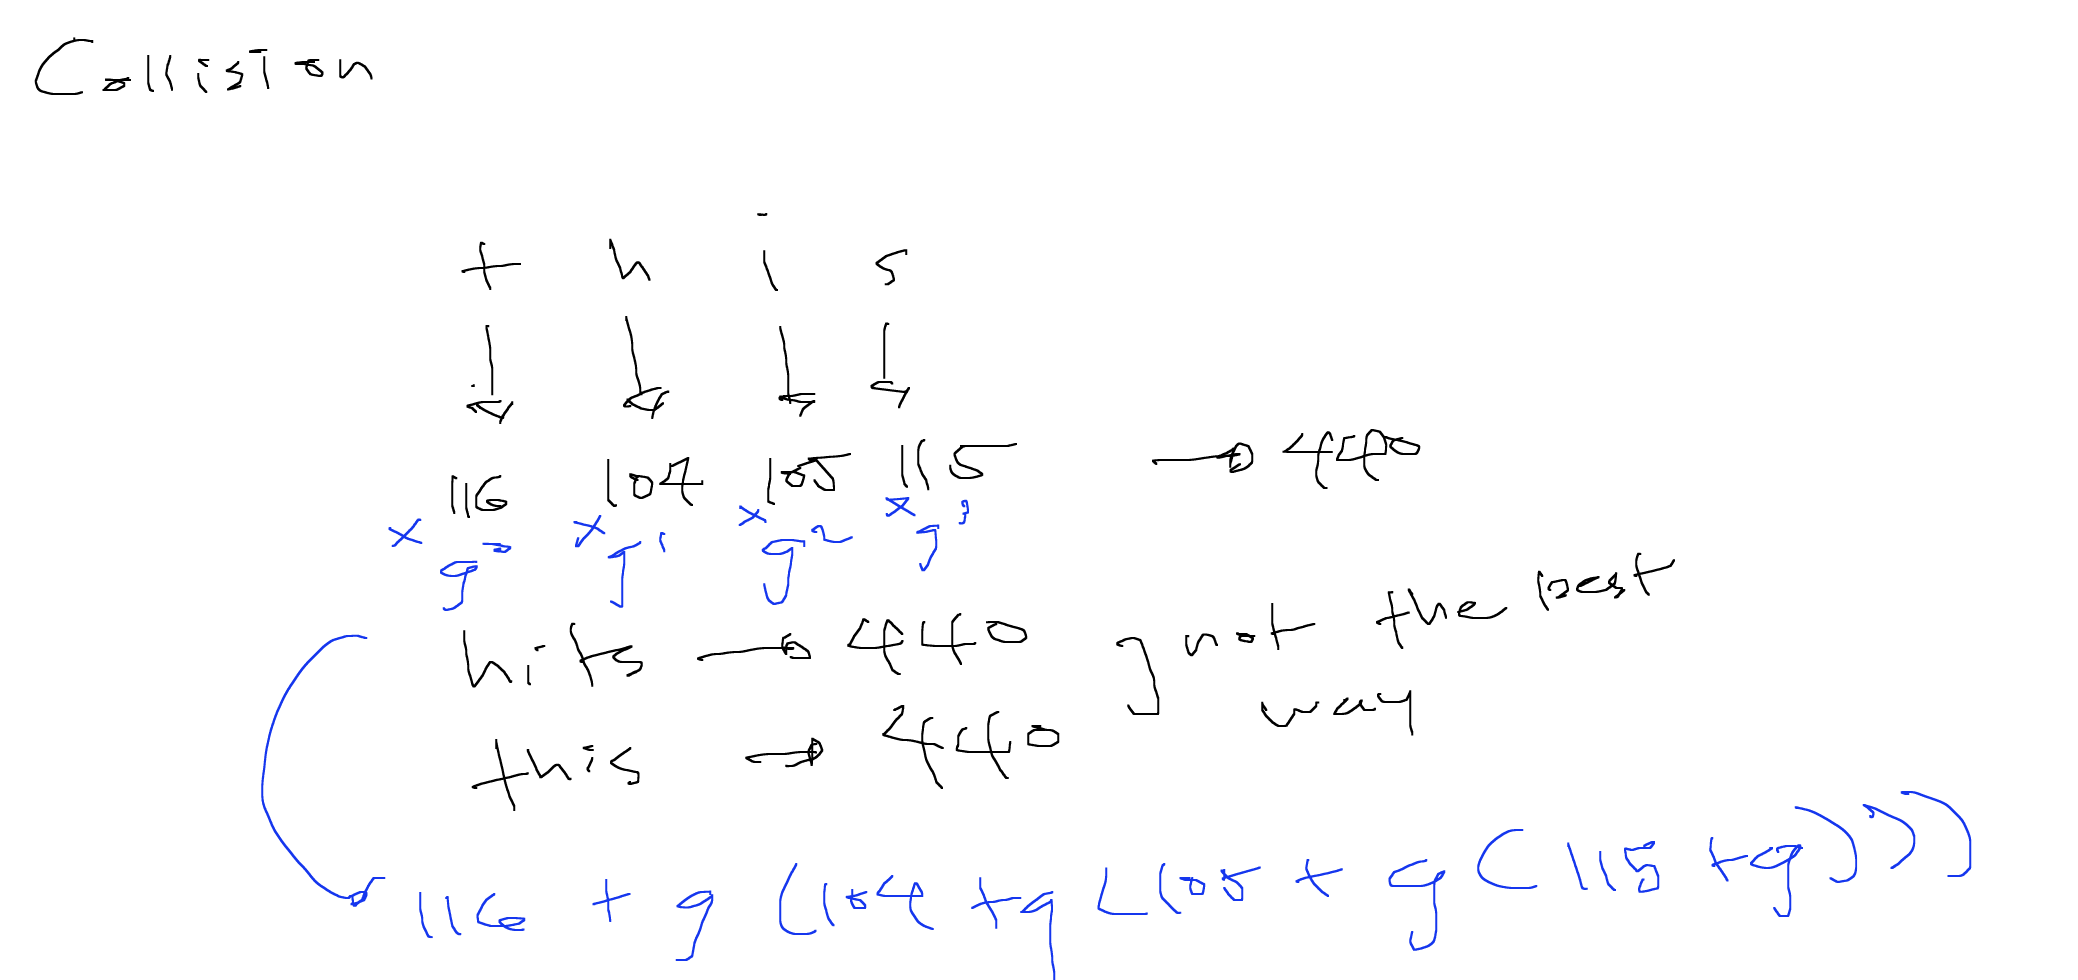 Collision
t h i s
116 104 105 115 → 440
× g⁰ × g¹ × g² × g³
hits → 440 ] not the best
this → 440 way
116 + g (104 + g (105 + g (115 + g))))